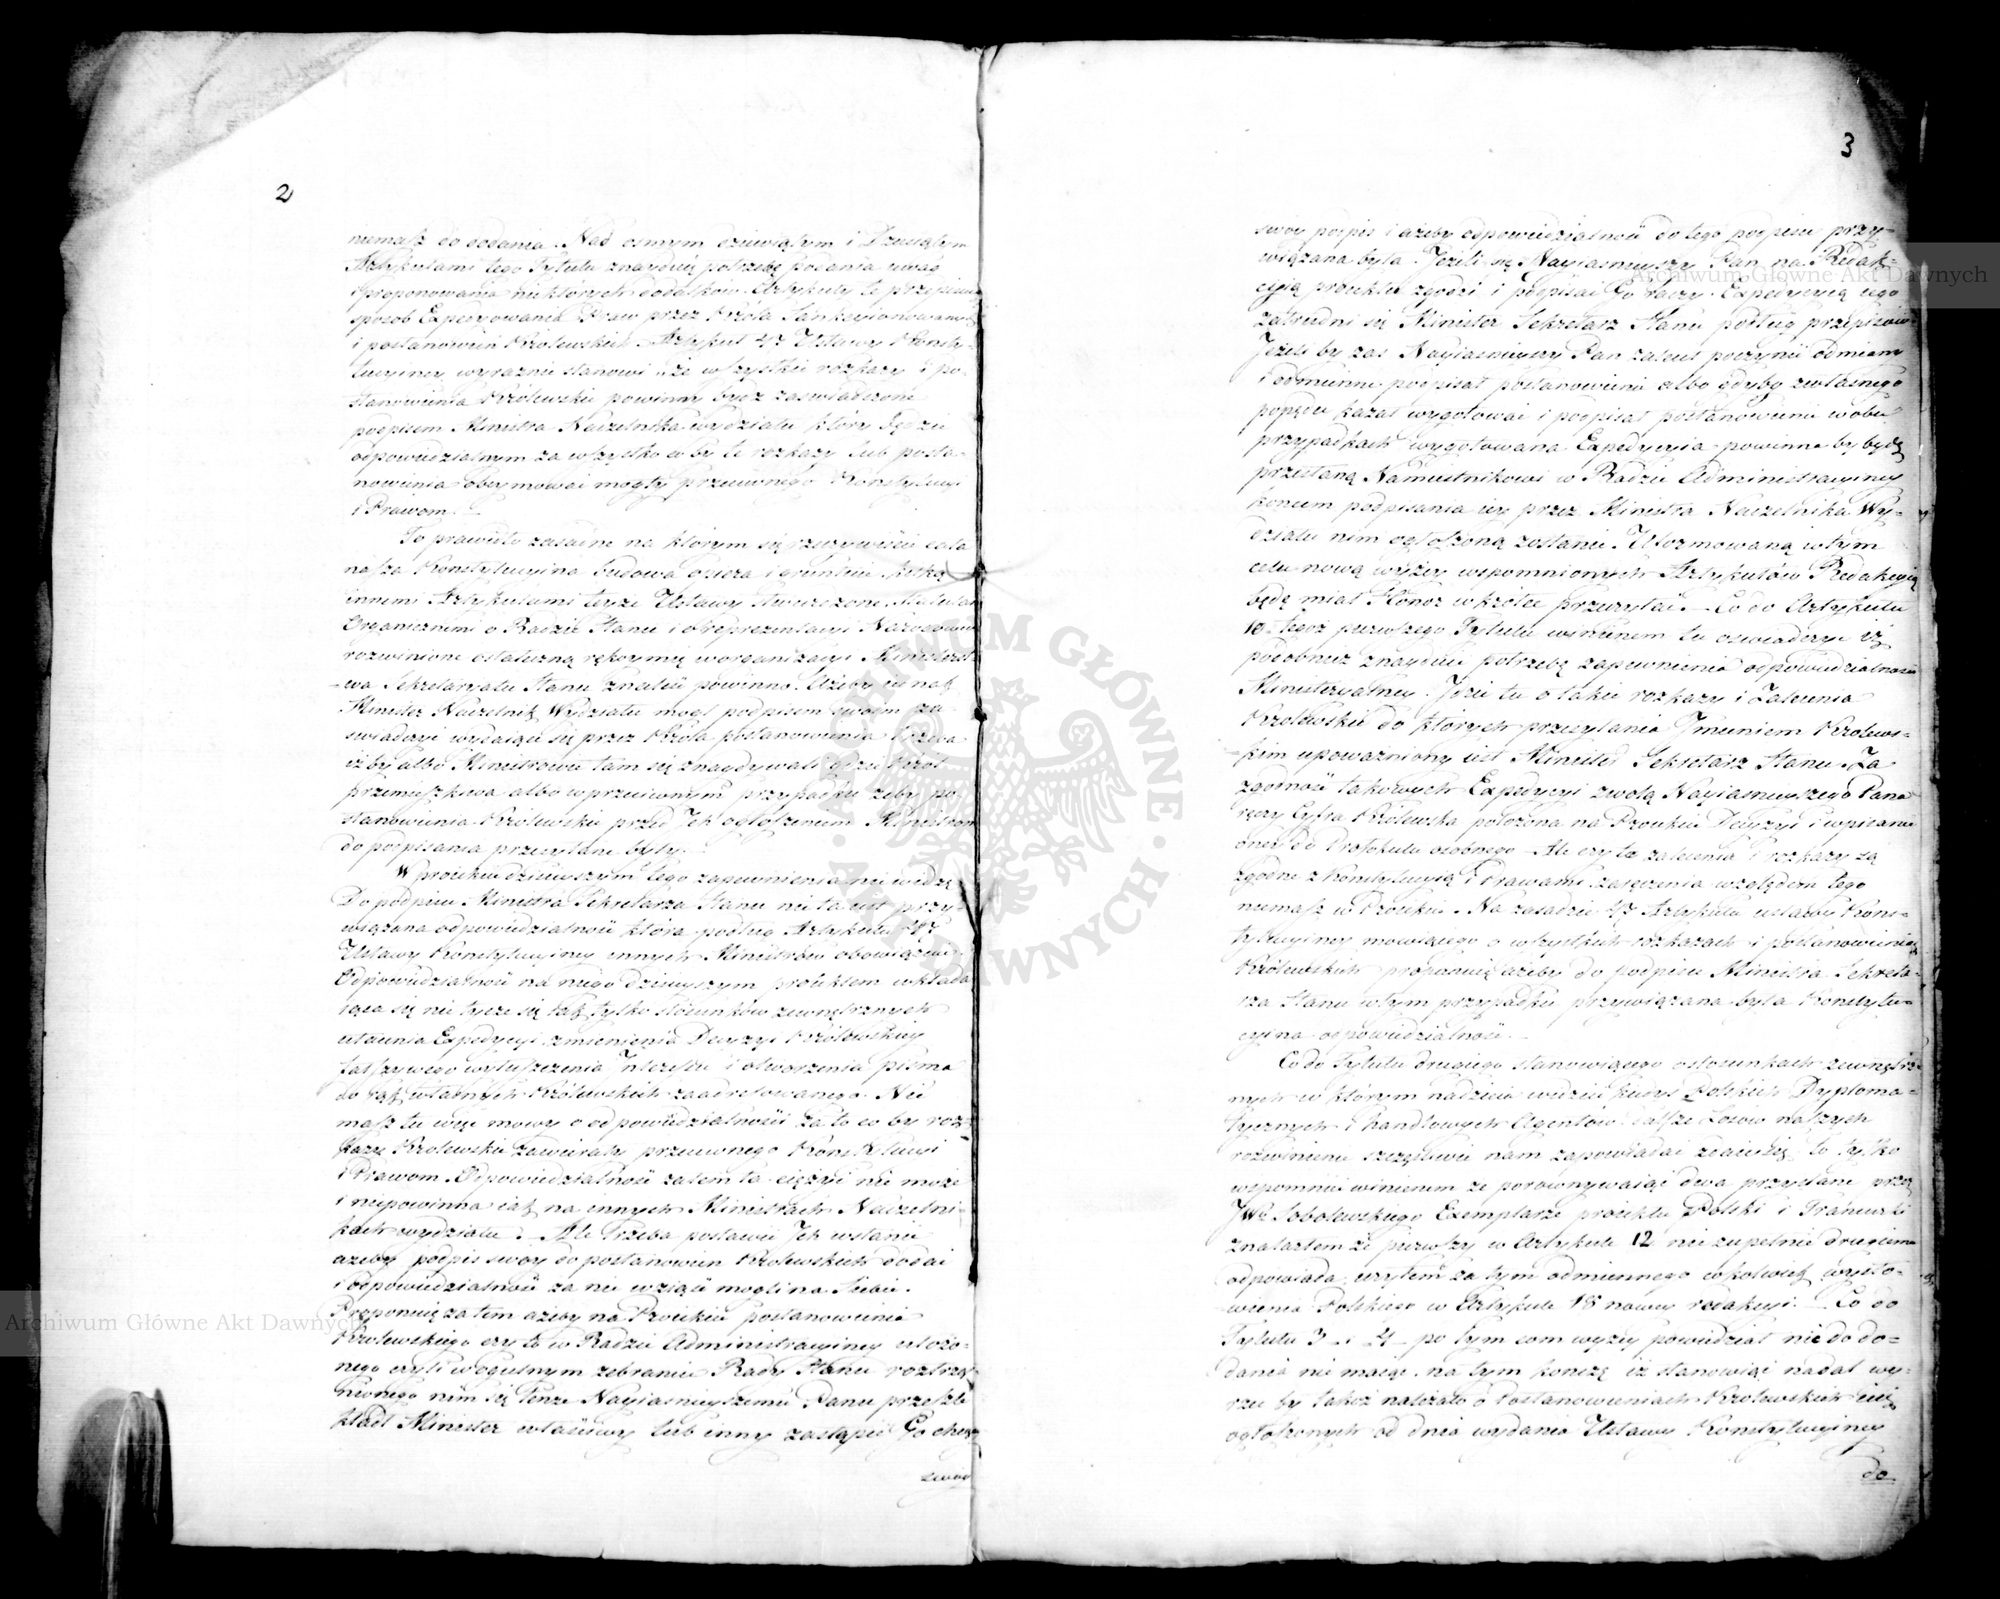 2
niemasz do dodania. Nad osmym dziewiątym i Dziesiątym
Artykułami tego Tytułu znayduię potrzebę podania uwag
i proponowania niektórych dodatków. Artykuły te przepisuią
sposob Expedyowania Praw przez Króla Sankcyionowanych
i postanowień Królewskich. Artykuł 47 Ustawy Konsty-
tucyiney wyraźnie stanowi „że wszystkie rozkazy i po-
stanowienia Królewskie powinny bydz zaswiadczone
podpisem Ministra Naczelnika wydziału który będzie
odpowiedzialnym za wszystko coby te rozkazy lub posta-
nowienia obeymować mogły przeciwnego Konstytucyi
i Prawom. —
To prawidło zasadne na którym się rzeczywiście cała
nasza Konstytucyina budowa opiera i gruntuie
innemi Artykułami teyże Ustawy stwierdzone, Statutami
Organicznemi o Radzie Stanu i o Reprezentacyi Narodowey
rozwinione ostateczną rękoymię w organizacyi Ministerst-
wa Sekretaryatu Stanu znaleść powinno. Ażeby iednak
Minister Naczelnik Wydziału mogł podpisem swoim za-
swiadczyć wydaiące się przez Króla postanowienia trzeba
iżby albo Ministrowie tam się znaydywali gdzie Król
przemieszkiwa albo w przeciwnym przypadku żeby po-
stanowienia Królewskie przed Ich ogłoszeniem Ministrom
do podpisania przesyłane były.
W proiekcie dzisieyszym tego zapewnienia nie widzę
Do podpisu Ministra Sekretarza Stanu nie ta iest przy-
wiązana odpowiedzialność która podług Artykułu 47
Ustawy Konstytucyiney innych Ministrów obowiązuie.
Odpowiedzialność na niego dzisieyszym proiektem wkłada-
iąca się nie tycze się iak tylko stosunków zewnętrznych
utaienia Expedycyi zmienienia Decyzyi Królewskiey
fałszywego wytłuszczenia Interesu i otworzenia pisma
do rąk własnych Królewskich zaadresowanego. Nie
masz tu więc mowy o odpowiedzialności za to co by roz-
kazy Królewskie zawierały przeciwnego Konstytucyi
i Prawom. Odpowiedzialność zatem ta ciężyć nie może
i niepowinna iak na innych Ministrach Naczelni-
kach wydziału. — Ale Trzeba postawić Ich w stanie
ażeby podpis swoy do postanowień Królewskich dodać
i odpowiedzialność za nie wziąść mogli na Siebie.
Proponuię zatem ażeby na Proiekcie postanowienia
Królewskiego czy to w Radzie Administracyiney ułożo-
nego czyli w ogulnym zebraniu Rady Stanu roztrzą-
śnionego nim się tenże Nayiasnieyszemu Panu prześle
kładł Minister właściwy lub inny zastąpić Go chcący
swoy
3
swoy podpis i ażeby odpowiedzialność do tego podpisu przy-
wiązana była. Jeżeli się Nayiasnieyszy Pan na Redak-
cyią proiektu zgodzi i podpisać Go raczy. Expedycyią iego
zatrudni się Minister Sekretarz Stanu podług przepisów.
Jeżeli by zaś Nayiasnieyszy Pan zalecił poczynić odmiany
i odmienne podpisał postanowienie albo gdyby z własnego
popędu kazał wygotować i podpisał postanowienie w obu
przypadkach wygotowana Expedycyia powinna by bydź
przesłaną Namiestnikowi w Radzie Administracyiney
koncem podpisania iey przez Ministra Naczelnika Wy-
działu nim ogłoszoną zostanie. Uformowaną w tym
celu nową wyżey wspomnionych Artykułów Redakcyią
będę miał Honor wkrótce przeczytać. — Co do Artykułu
10. tegoż pierwszego Tytułu winienem tu oświadczyć iż
podobnież znayduię potrzebę zapewnienia odpowiedzialności
Ministeryalney. Idzie tu o takie rozkazy i Zalecenia
Królewskie do których przesyłania Imieniem Królews-
kim upoważniony iest Minister Sekretarz Stanu. Za
zgodność takowych Expedycyi z wolą Nayiasnieyszego Pana
ręczy Cyfra Królewska położona na Proiekcie Decyzyi i wpisanie
oney do Protokułu osobnego. Ale czy te zalecenia i rozkazy są
zgodne z Konstytucyią i Prawami zaręczenia względem tego
niemasz w Proiekcie. Na zasadzie 47 Artykułu ustawy Kons-
tytucyiney mowiącego o wszystkich rozkazach i postanowieniach
Królewskich proponuię ażeby do podpisu Ministra Sekreta-
rza Stanu w tym przypadku przywiązana była Konstytu-
cyina odpowiedzialność. —
Co do Tytułu drugiego stanowiącego o stosunkach zewnętrz-
nych w którym nadzieia widzieć kiedyś Polskich Dyploma-
tycznych i handlowych Agentów dalsze Losów naszych
rozwinienie szczęśliwie nam zapowiadać zdaie się to tylko
wspomnić winienem że porównywaiąc dwa przysłane przez
JWo Sobolewskiego Exemplarze proiektu Polski i Francuski
znalazłem że pierwszy w Artykule 12 nie zupełnie drugiemu
odpowiada, użyłem za tym odmiennego cokolwiek wysło-
wienia Polskiego w Artykule 18 nowey redakcyi. — Co do
Tytułu 3. i 4. po tym com wyżey powiedział nic do do-
dania nie maiąc, na tym kończę iż stanowiąc nadal wy-
rzec by także należało o Postanowieniach Królewskich iuż
ogłoszonych od dnia wydania Ustawy Konstytucyiney
do
Archiwum Główne Akt Dawnych
Archiwum Główne Akt Dawnych
ARCHIWUM GŁÓWNE AKT DAWNYCH